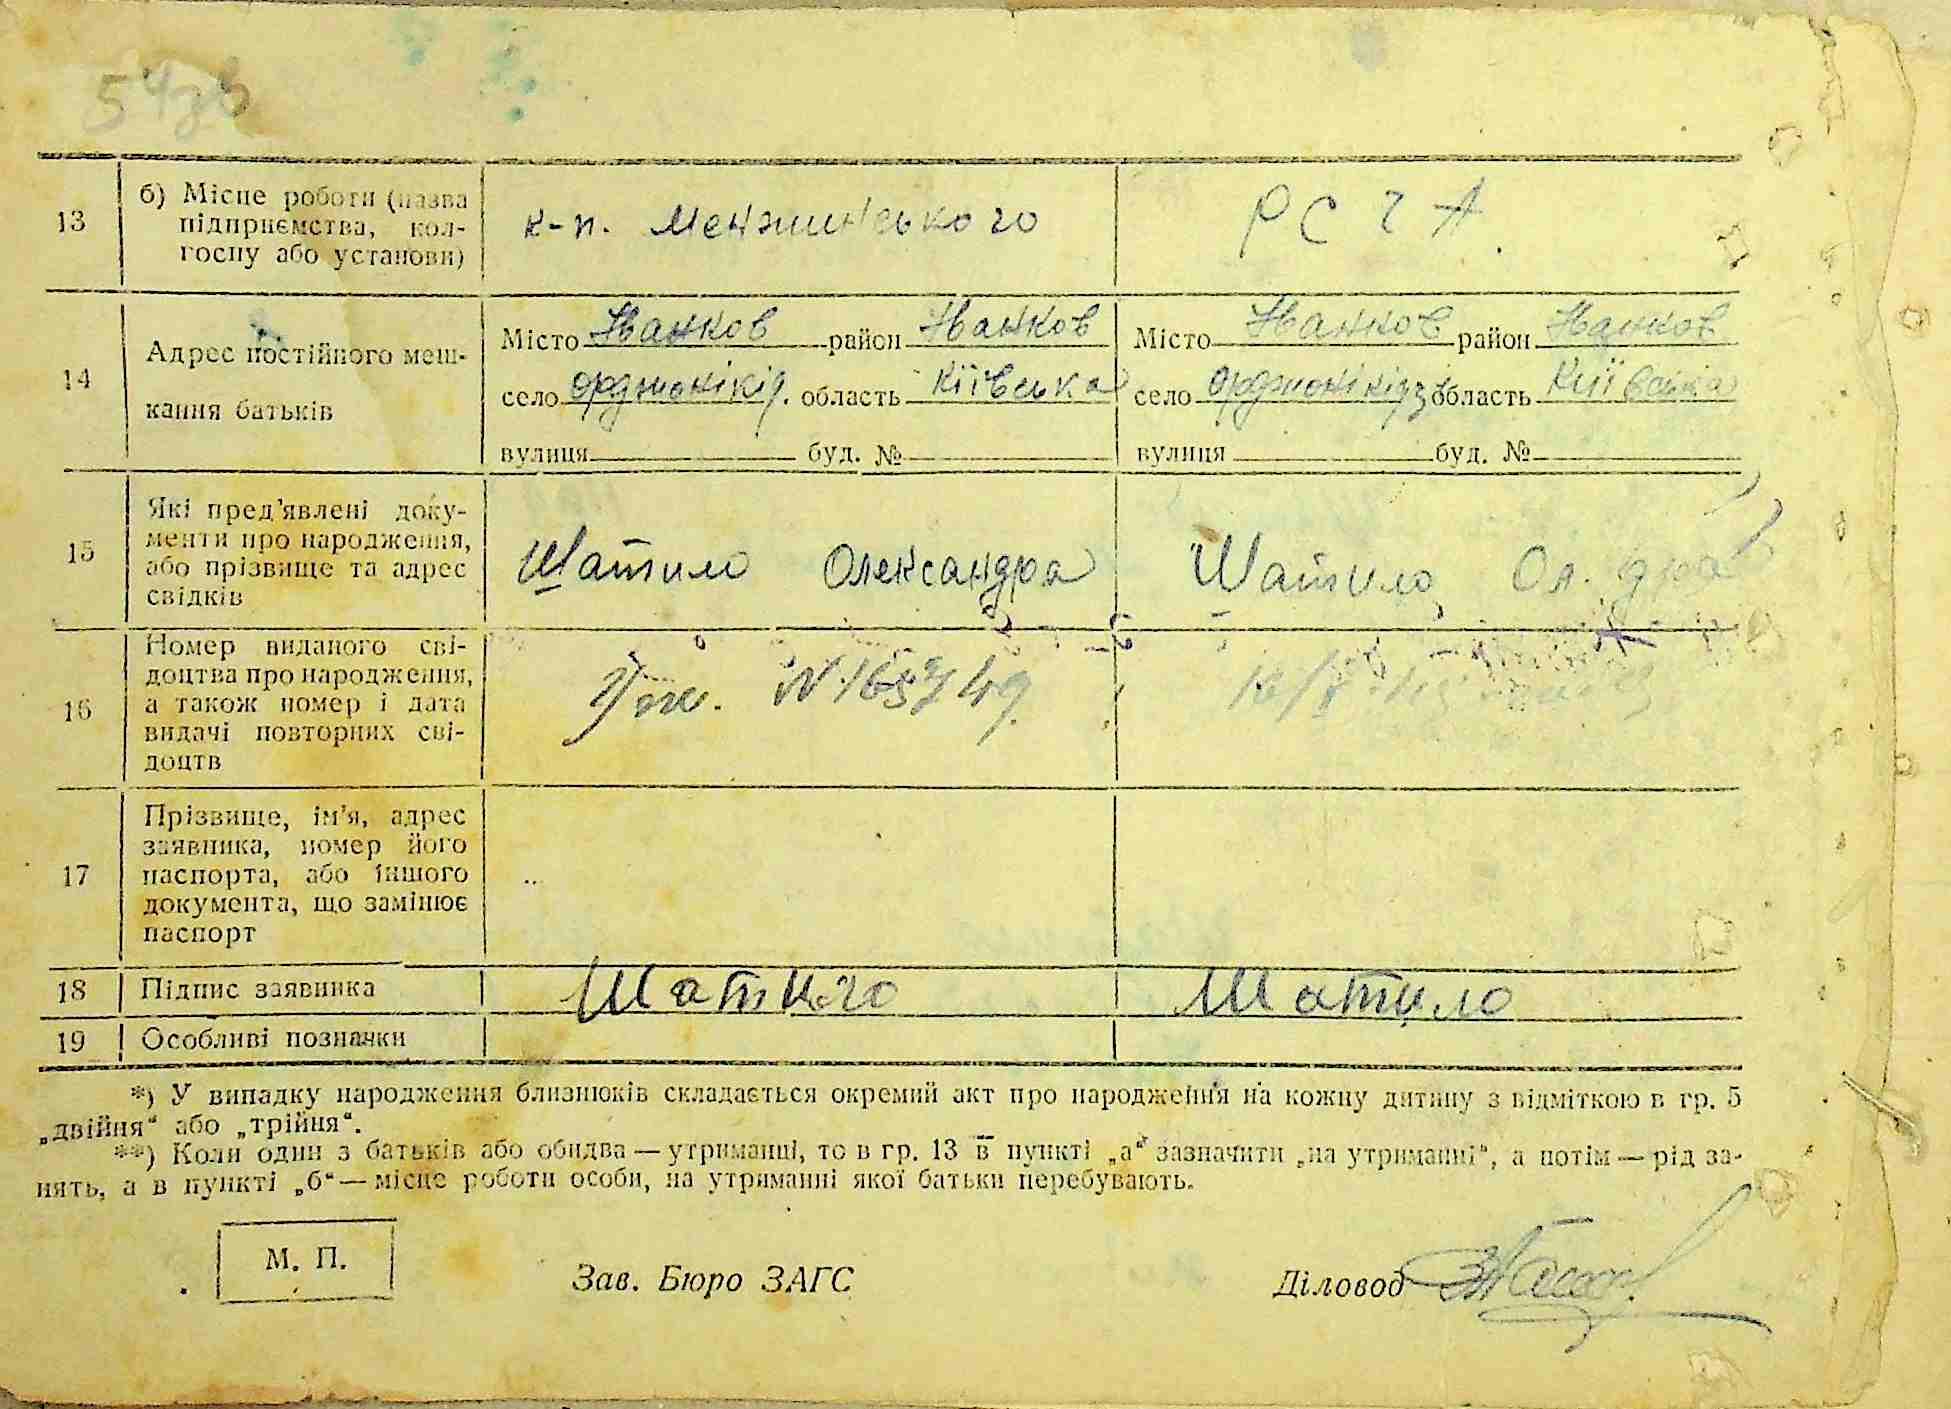 54зв
13
б) Місце роботи (назва
підприємства, кол-
госпу або установи)
к-п. Менжинського
РСЧА
14
Адрес постійного меш-
кання батьків
Місто Іванков район Іванков
село Орджонікід. область Київська
вулиця буд. №
Місто Іванков район Іванков
село Орджонікідз область Київська
вулиця буд. №
15
Які пред'явлені доку-
менти про народження,
або прізвище та адрес
свідків
Шатило Олександра
Шатило Ол. дра
16
Номер виданого сві-
доцтва про народження,
а також номер і дата
видачі повторних сві-
доцтв
17
Прізвище, ім'я, адрес
заявника, номер його
паспорта, або іншого
документа, що замінює
паспорт
18
Підпис заявника
Шатило
Шатило
19
Особливі позначки
*) У випадку народження близнюків складається окремий акт про народження на кожну дитину з відміткою в гр. 5
„двійня" або „трійня".
**) Коли один з батьків або обидва — утриманці, то в гр. 13 в пункті „а" зазначити „на утриманні", а потім — рід за-
нять, а в пункті „б" — місце роботи особи, на утриманні якої батьки перебувають.
М. П.
Зав. Бюро ЗАГС
Діловод